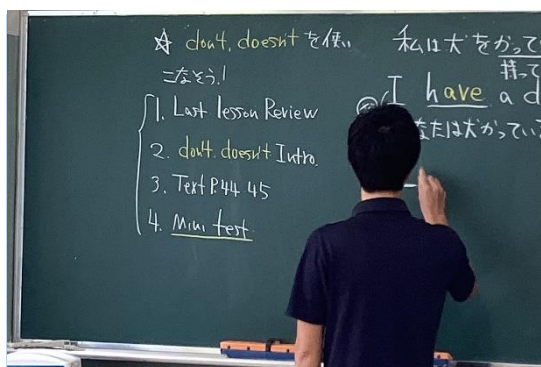 ☆ don't, doesn't を使い
こなそう!
1. Last lesson Review
2. don't. doesn't Intro.
3. Text P.44 45
4. Mini test
私は犬をかって
持って
I have a d
なたは犬かってい